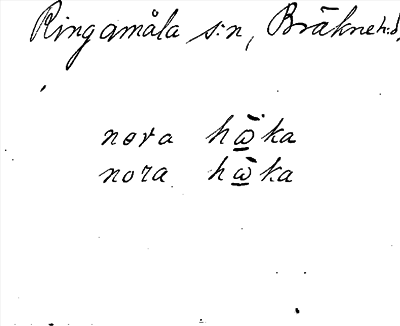 Ringamåla s:n, Bräkne hd,
nora hὼ̲ka
nora hὼ̲ka